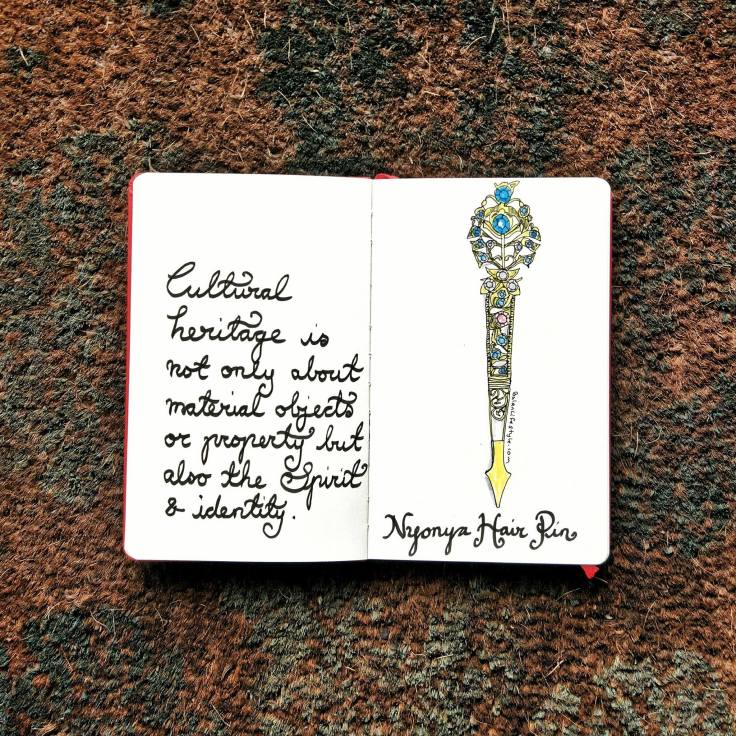 Cultural
heritage is
not only about
material objects
or property but
also the Spirit
& identity.
Nyonya Hair Pin